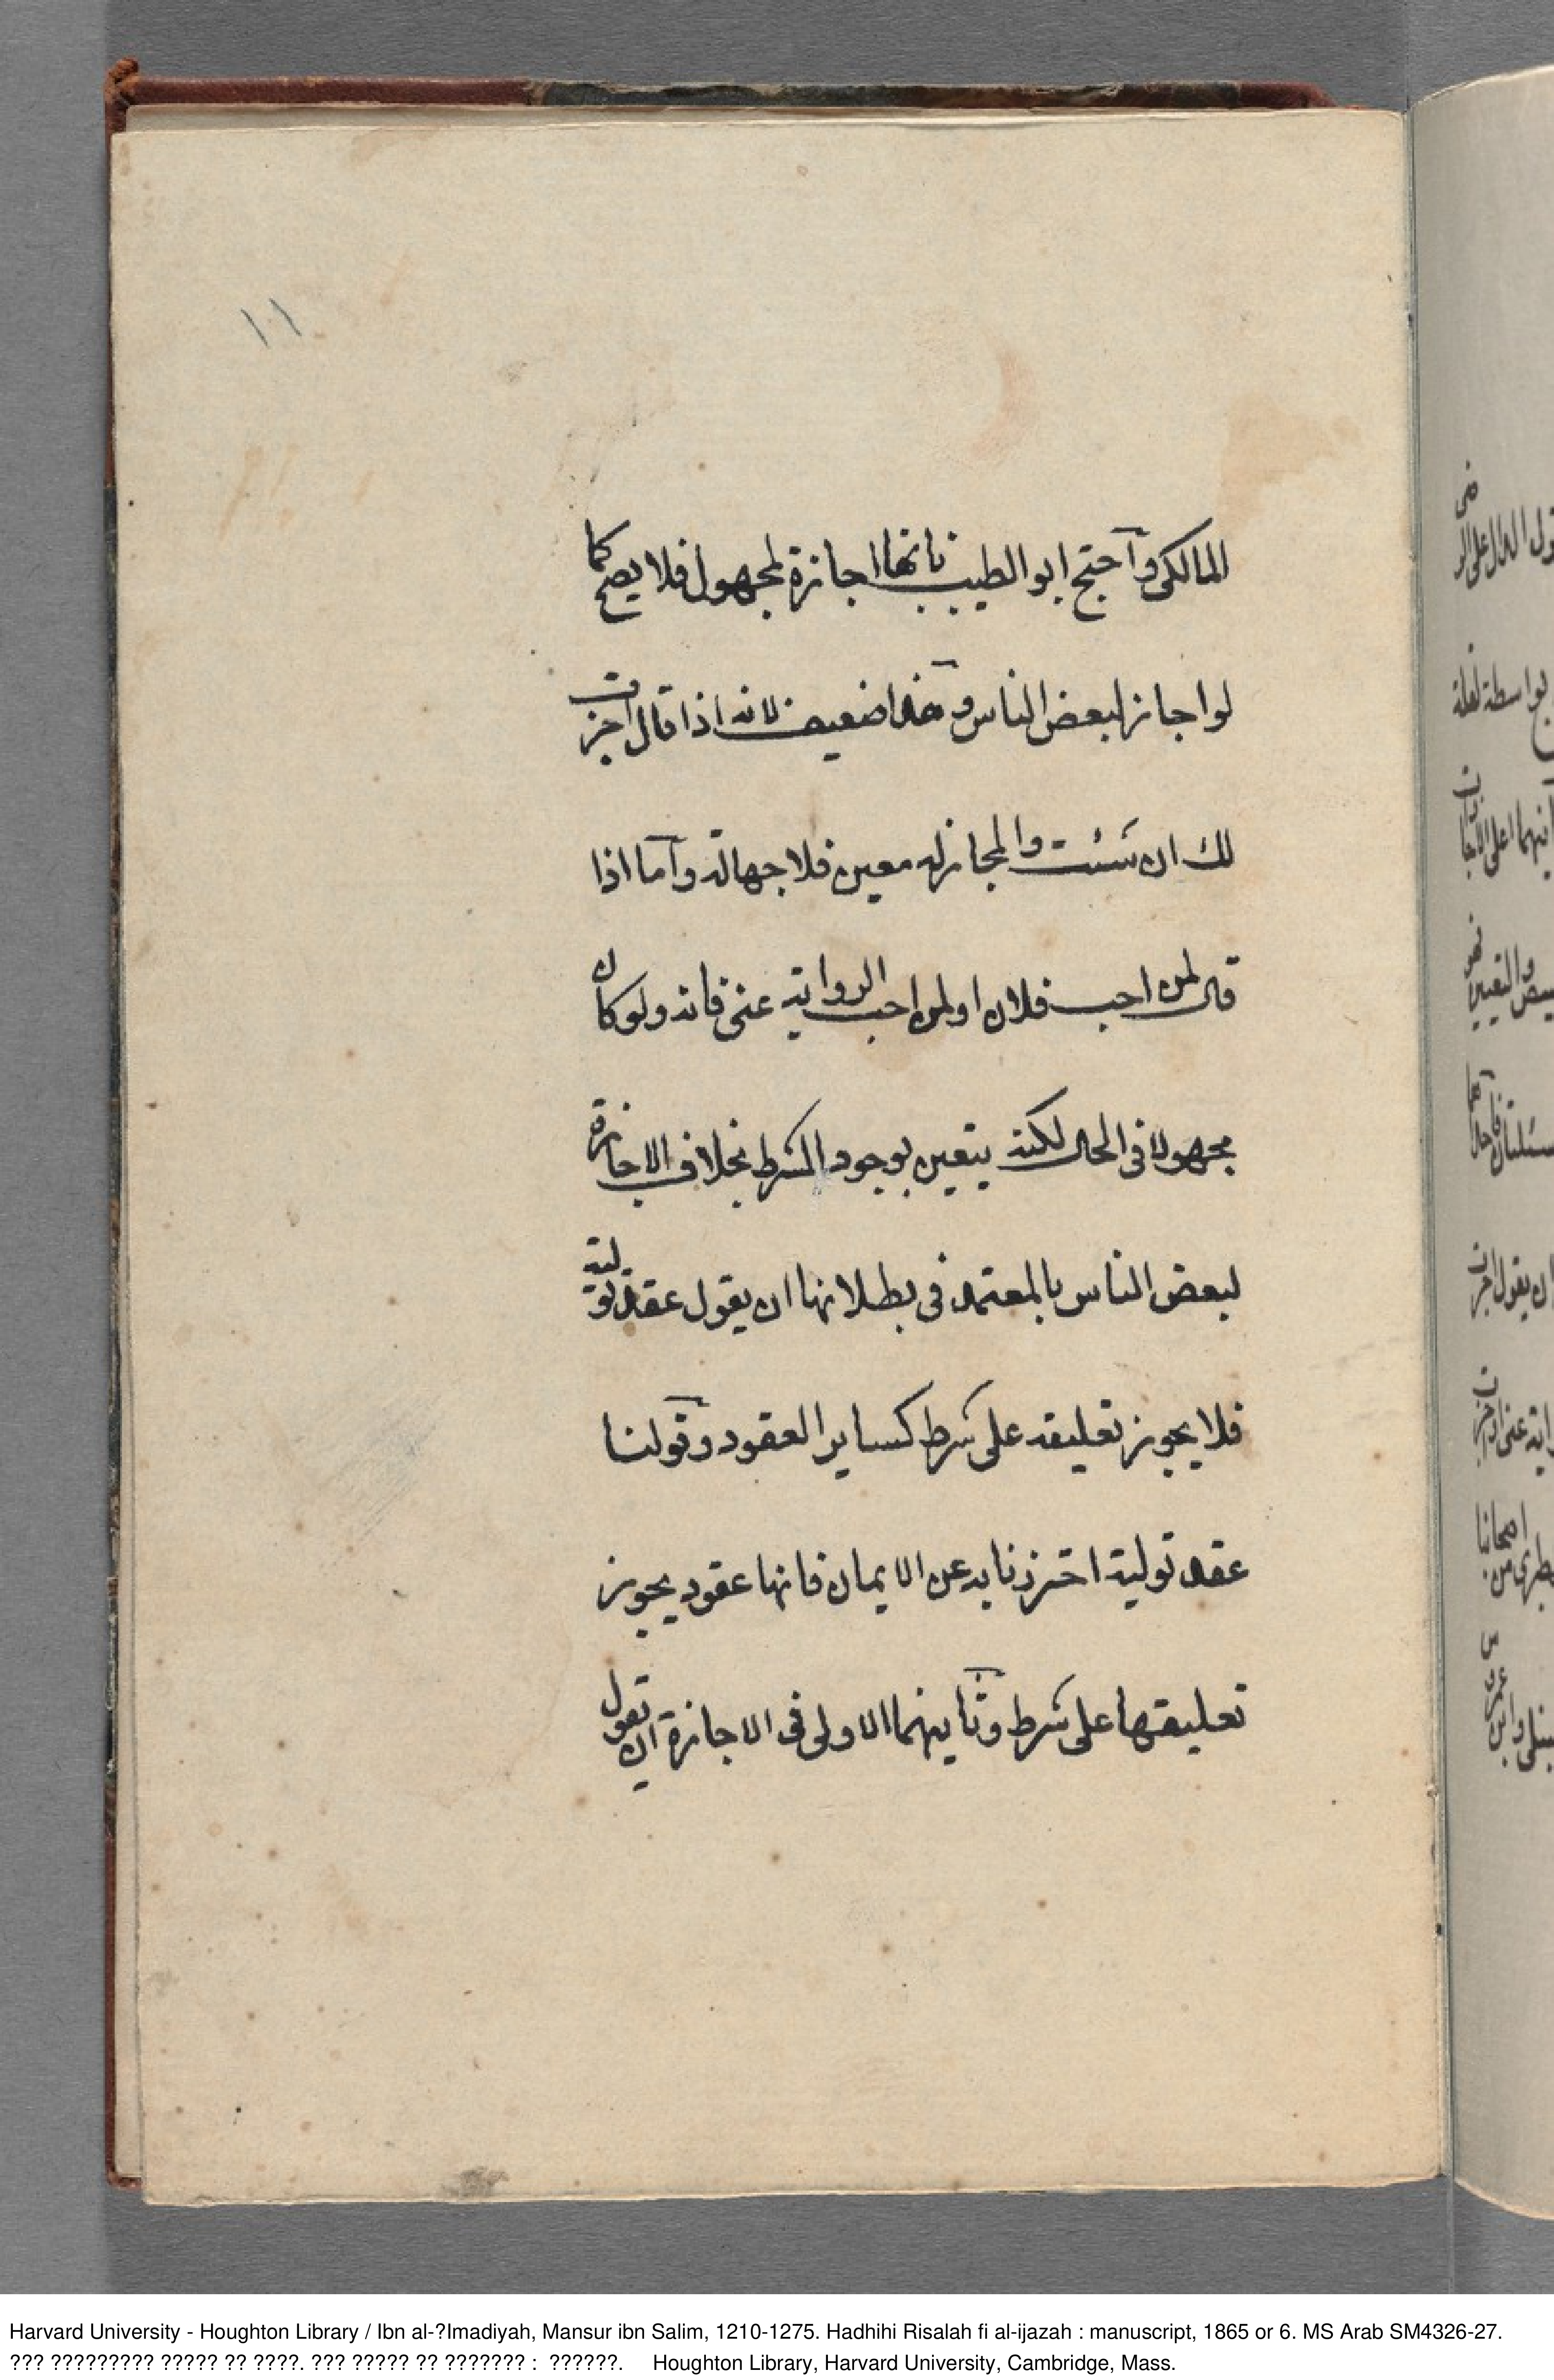 ١١
المالكى وآحتج ابو الطيب بانها اجازة لمجهول فلا يصح كما
لو اجاز لبعض الناس وهذا ضعيف لانه اذا قال اجزت
لك ان شئت والمجاز له معين فلا جهالة وآما اذا
قال لمن احب فلان او لمن احب الرواية عنى فانه ولو كان
مجهولا فى الحال لكنه يتعين بوجود الشرط بخلاف الاجازة
لبعض الناس بالمعتمد فى بطلانها ان يقول عقد تولية
فلا يجوز تعليقه على شرط كساير العقود وقولنا
عقد تولية احترزنا به عن الايمان فانها عقود يجوز
تعليقها على شرط وثانيهما الاولى فى الاجازة ان تقول
Harvard University - Houghton Library / Ibn al-?Imadiyah, Mansur ibn Salim, 1210-1275. Hadhihi Risalah fi al-ijazah : manuscript, 1865 or 6. MS Arab SM4326-27.
??? ????????? ????? ?? ????. ??? ????? ?? ??????? : ??????. Houghton Library, Harvard University, Cambridge, Mass.